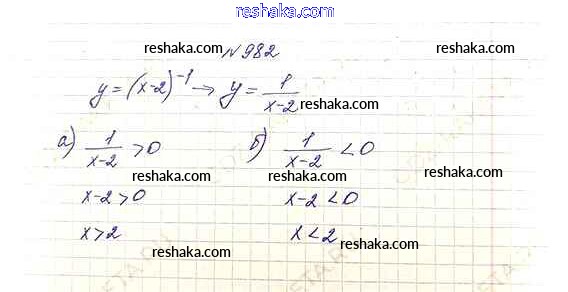 reshaka.com
reshaka.com №982 reshaka.com
y=(x-2)⁻¹→ y=1/(x-2) reshaka.com
а) 1/(x-2)>0 б) 1/(x-2)<0
reshaka.com reshaka.com
x-2>0 x-2<0
reshaka.com reshaka.com
x>2 x<2 reshaka.com
reshaka.com